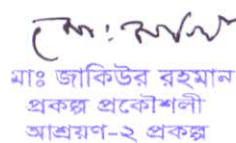 মাঃ জাকিউর রহমান
প্রকল্প প্রকৌশলী
আশ্রয়ণ-২ প্রকল্প